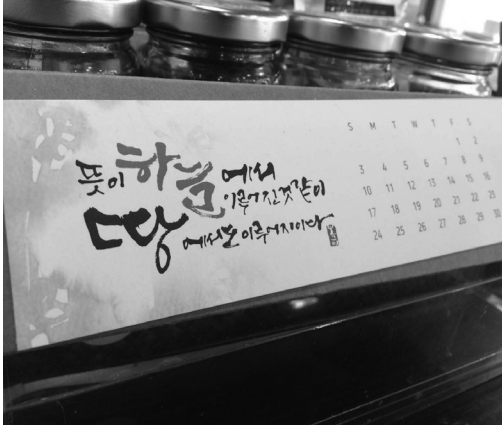 뜻이 하늘에서
이루어진것같이
땅에서도 이루어지이다
S M T W T F S
1 2
3 4 5 6 7 8 9
10 11 12 13 14 15 16
17 18 19 20 21 22 23
24 25 26 27 28 29